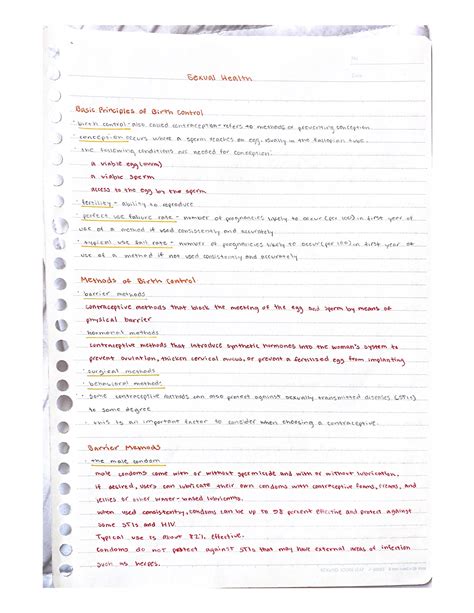 Sexual Health
Basic Principles of Birth Control
· birth control - also called contraception - refers to methods of preventing conception
· conception occurs where a sperm reaches an egg, usually in the fallopian tube.
· the following conditions are needed for conception:
a viable egg (ovum)
a viable sperm
access to the egg by the sperm
· fertility - ability to reproduce
· perfect use failure rate - number of pregnancies likely to occur (per 100) in first year of
use of a method if used consistently and accurately
· typical use fail rate - number of pregnancies likely to occur (per 100) in first year of
use of a method if not used consistently and accurately
Methods of Birth Control:
· barrier methods
contraceptive methods that block the meeting of the egg and sperm by means of
physical barrier
· hormonal methods
contraceptive methods that introduce synthetic hormones into the woman's system to
prevent ovulation, thicken cervical mucus, or prevent a fertilized egg from implanting
· surgical methods
· behavioral methods
· some contraceptive methods can also protect against sexually transmitted diseases (STIs)
to some degree
· this is an important factor to consider when choosing a contraceptive.
Barrier Methods
· the male condom
male condoms come with or without spermicide and with or without lubrication.
if desired, users can lubricate their own condoms with contraceptive foams, creams, and
jellies or other water-based lubricants.
when used consistently, condoms can be up to 98 percent effective and protect against
some STIs and HIV.
Typical use is about 82% effective.
Condoms do not protect against STIs that may have external areas of infection
such as herpes.